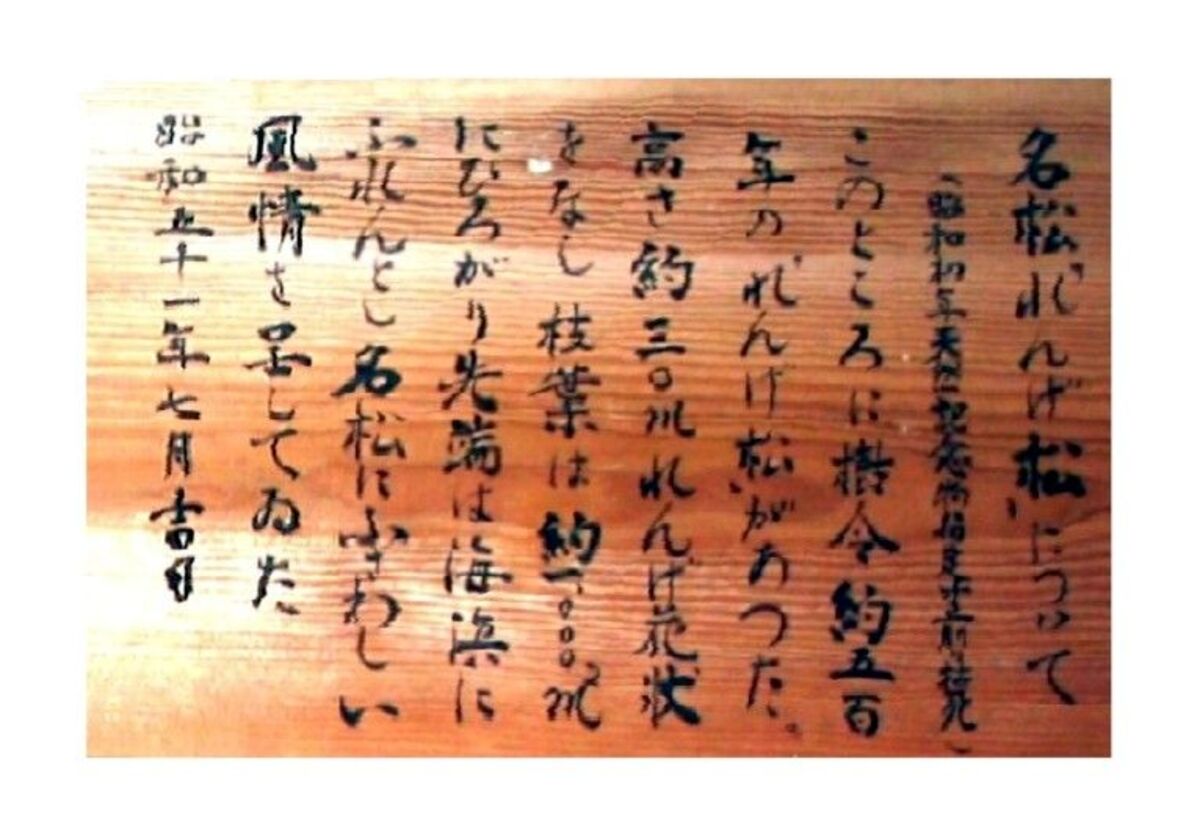 名松「れんげ松」について
（昭和初年天然記念物指定寸前枯死）
このところに樹令約五百
年の「れんげ松」があつた。
高さ約三〇m れんげ花状
をなし 枝葉は約一、〇〇〇㎡
にひろがり先端は海浜に
ふれんとし名松にふさわしい
風情を呈してゐた
昭和五十一年七月吉日